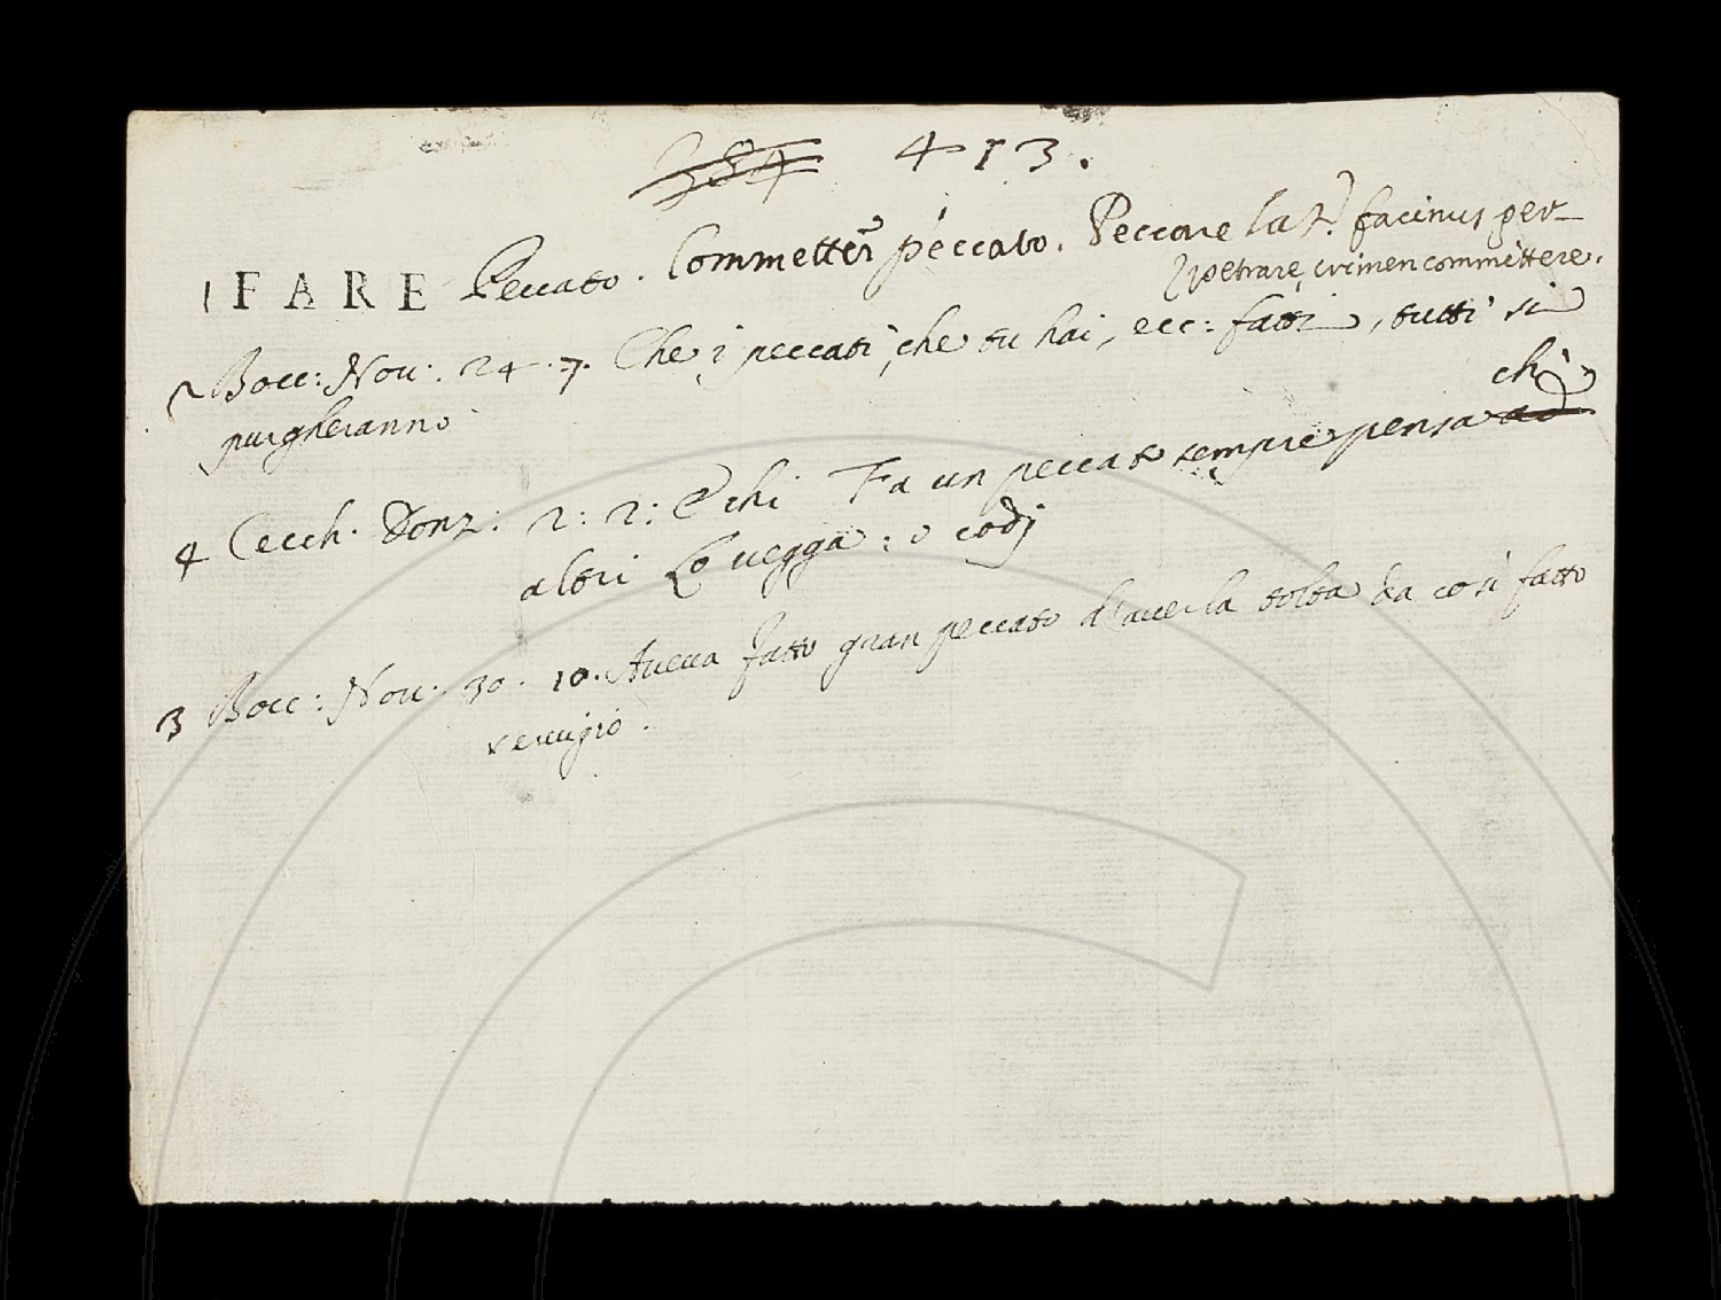 384 413.
1 FARE Peccato. Commetter peccato. Peccare lat. facinus per-
petrare, crimen committere.
2 Bocc: Nov: 24. 7. Che i peccati, che tu hai, ecc: fatti, tutti si
purgheranno
chi
4 Cecch. Donz: 2: 2: E chi Fa un peccato sempre pensa ad
altri lo vegga: o
3 Bocc: Nov: 30. 10. Aveva fatto gran peccato d'averla tolta da così fatto
servigio.